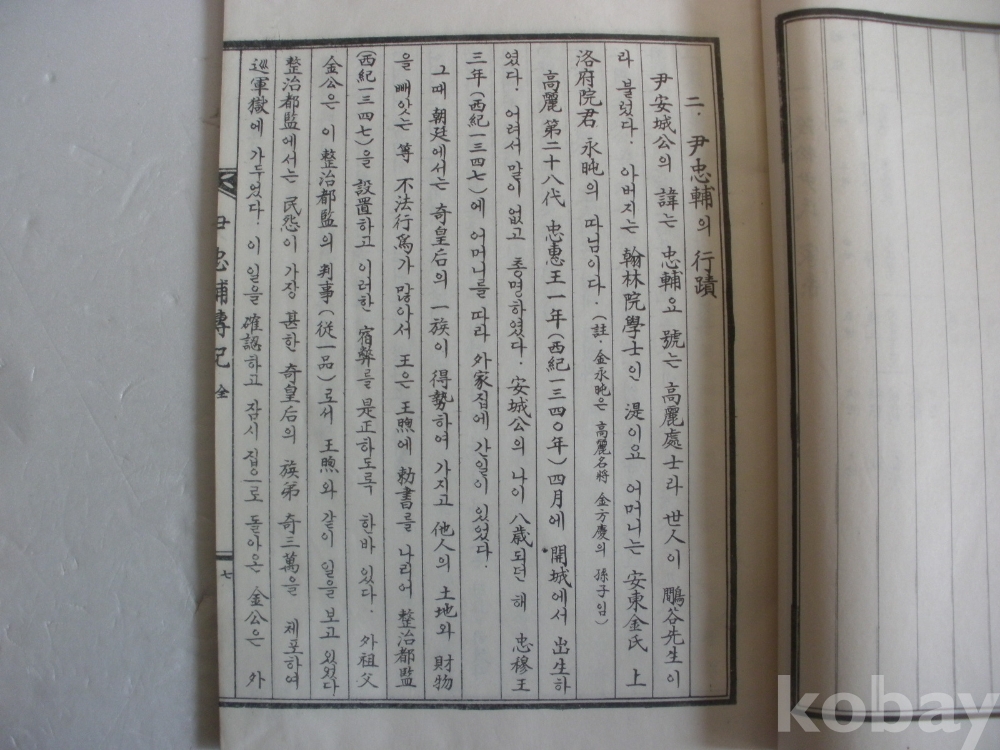 二. 尹忠輔의 行蹟
尹安城公의 諱는 忠輔요 號는 高麗處士라 世人이 鵬谷先生이
라 불렀다. 아버지는 翰林院學士인 湜이요 어머니는 安東金氏 上
洛府院君 永旽의 따님이다. (註. 金永旽은 高麗名將 金方慶의 孫子임)
高麗 第二十八代 忠惠王一年(西紀一三四〇年)四月에 開城에서 出生하
였다. 어려서 말이 없고 총명하였다. 安城公의 나이 八歲되던 해 忠穆王
三年(西紀一三四七)에 어머니를 따라 外家집에 간일이 있었다.
그때 朝廷에서는 奇皇后의 一族이 得勢하여 가지고 他人의 土地와 財物
을 빼앗는 等 不法行爲가 많아서 王은 王煦에 勅書를 나리어 整治都監
(西紀一三四七)을 設置하고 이러한 宿弊를 是正하도록 한바 있다. 外祖父
金公은 이 整治都監의 判事(從一品)로서 王煦와 같이 일을 보고 있었다
整治都監에서는 民怨이 가장 甚한 奇皇后의 族弟 奇三萬을 체포하여
巡軍獄에 가두었다. 이 일을 確認하고 잠시 집으로 돌아온 金公은 外
尹忠輔傳記 全
七
kobay